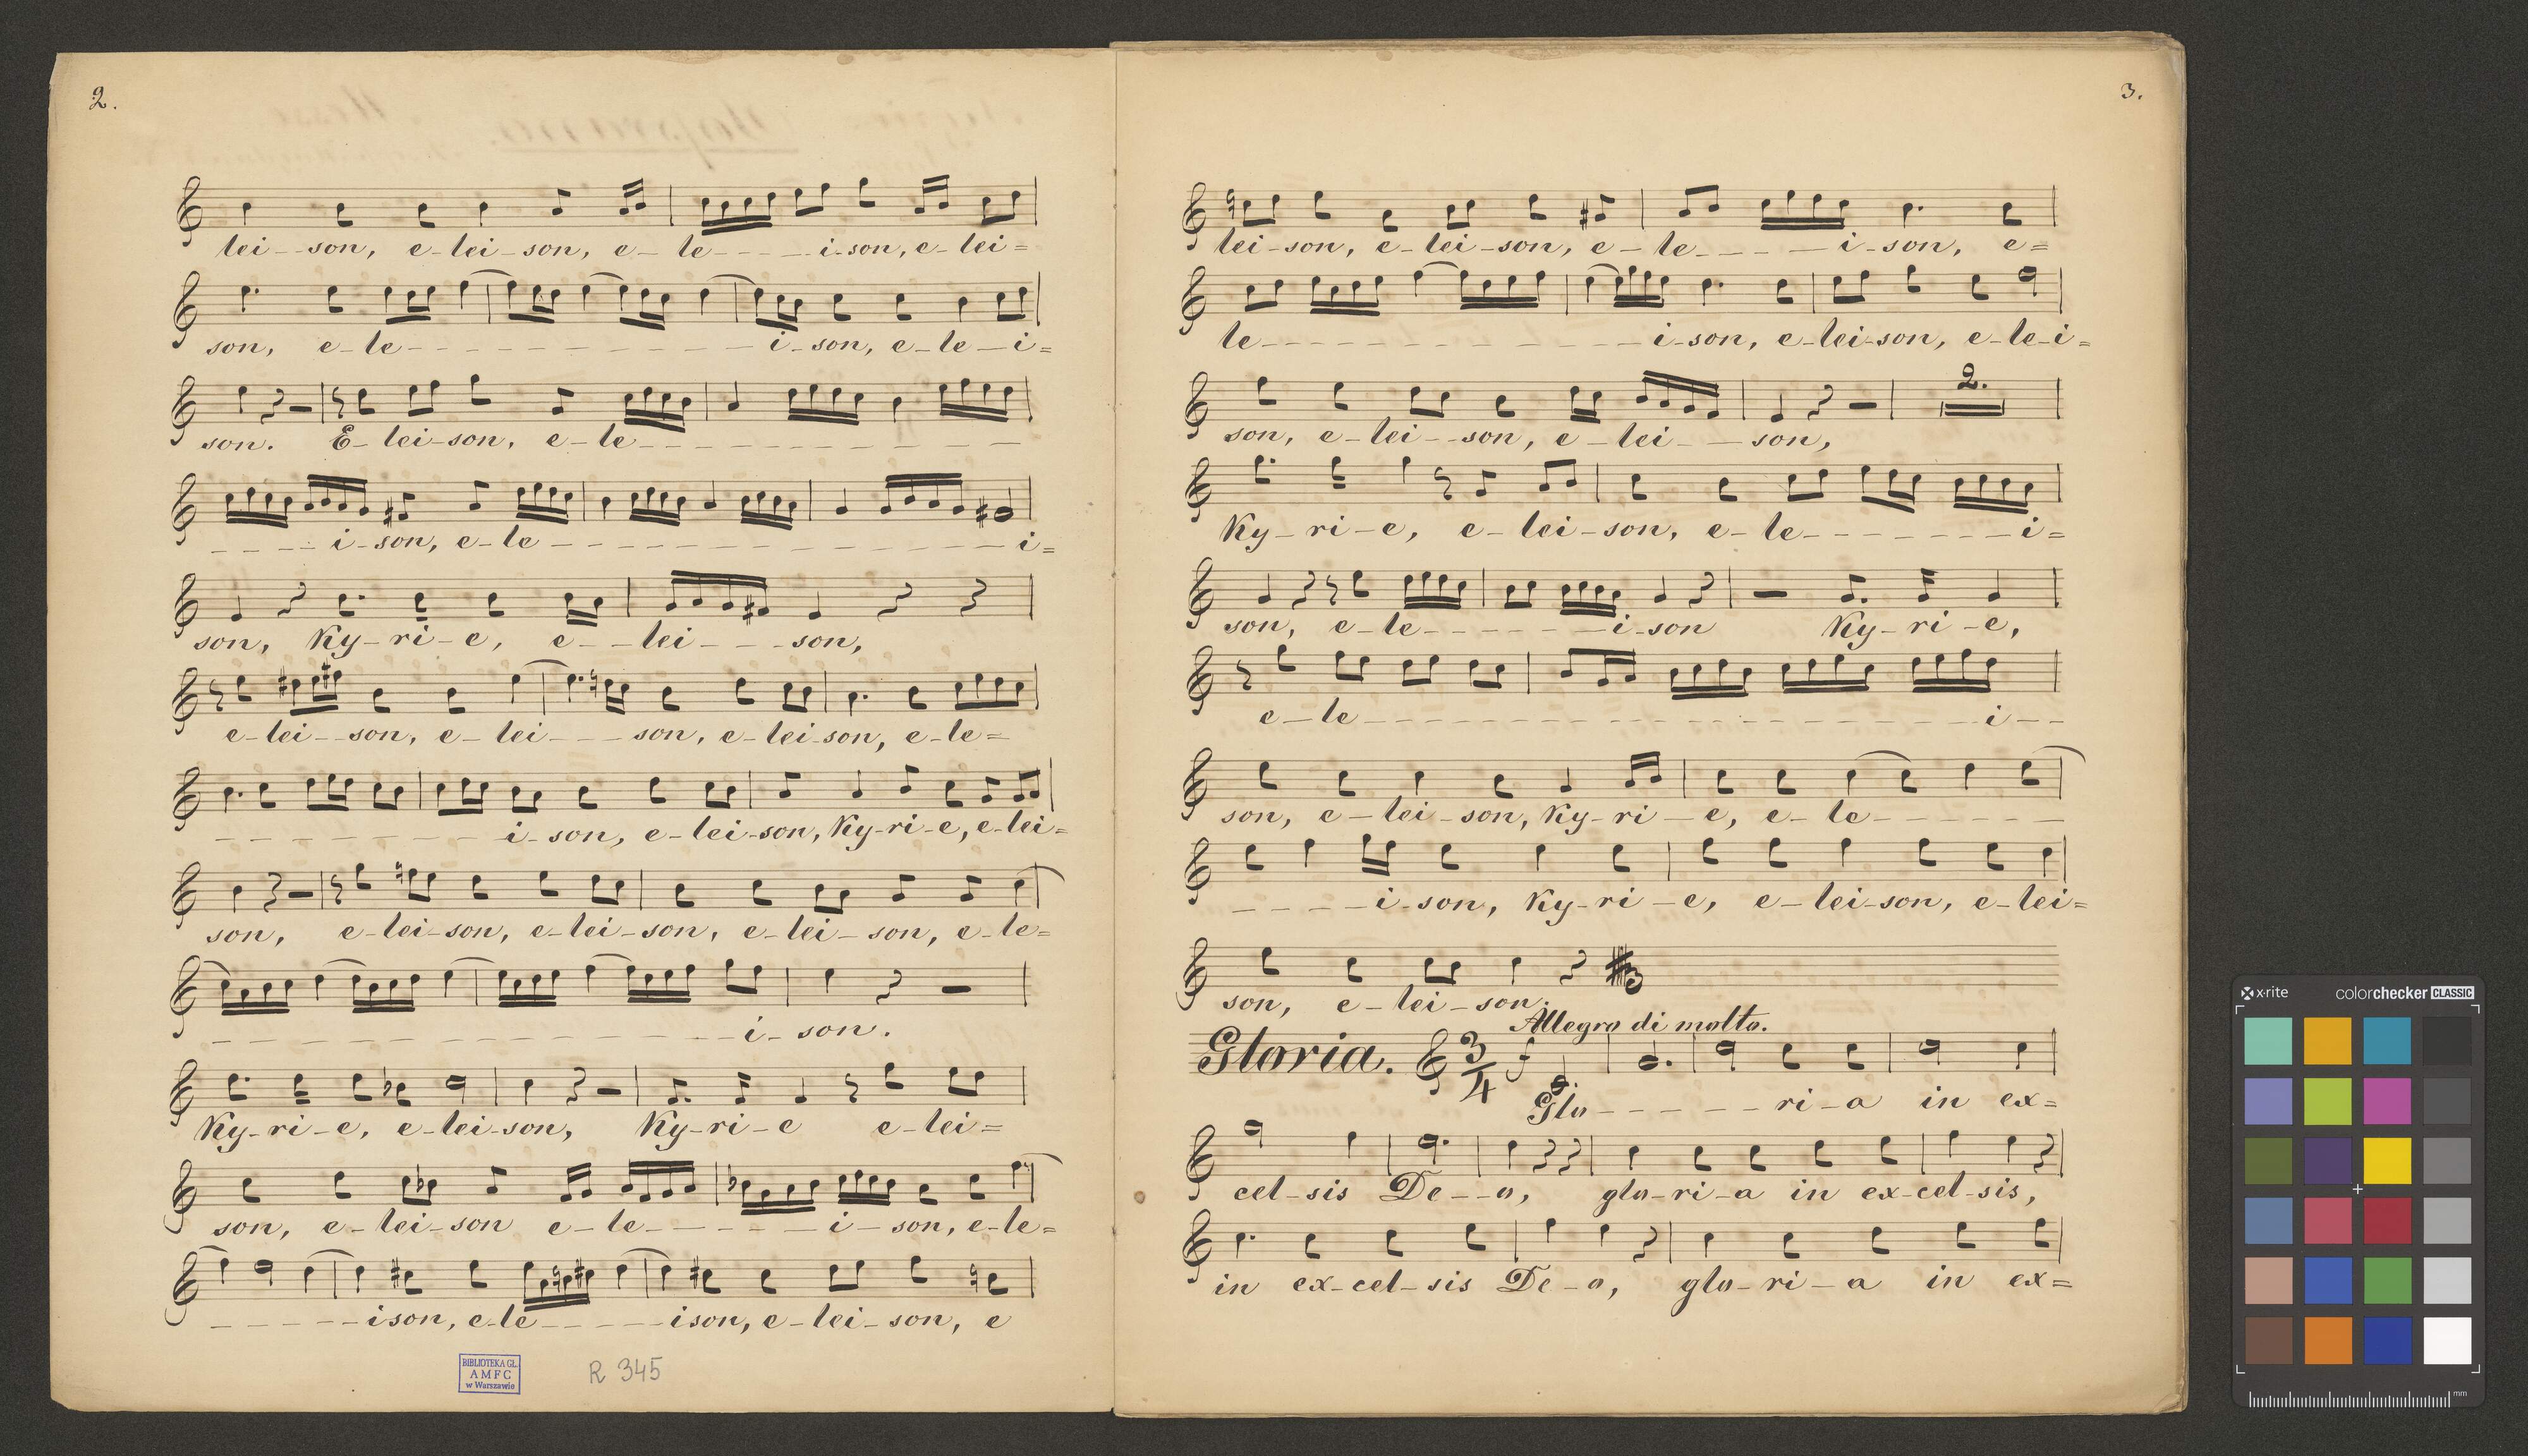 2.
lei - - son, e - lei - son, e - le - - - - i - son, e - lei =
son, e - le - - - - - - - - - i - son, e - le - i =
son. E - lei - son, e - le - - - - - - - - -
- - - - i - son, e - le - - - - - - - - - - - - - i =
son, Ky - ri - e, e - - lei - - - son,
e - lei - - son, e - lei - - - son, e - lei - son, e - le =
- - - - - - - - i - son, e - lei - son, Ky - ri - e, e - lei =
son, e - lei - son, e - lei - son, e - lei - son, e - le =
- - - - - - - - - - - i - son.
Ky - ri - e, e - lei - son, Ky - ri - e e - lei =
son, e - lei - son e - le - - - - - i - son, e - le =
- - - - - ison, e - le - - - - ison, e - lei - son, e
BIBLIOTEKA GŁ.
AMFC
w Warszawie
R 345
3.
lei - son, e - lei - son, e - le - - - - i - son, e =
le - - - - - - - - - - - i - son, e - lei - son, e - le - i =
2.
son, e - lei - - son, e - lei - - son,
Ky - ri - e, e - lei - son, e - le - - - - - - i =
son, e - le - - - - - i - son Ky - ri - e,
e - le - - - - - - - - - - - - - - - i - -
son, e - lei - son, Ky - ri - e, e - le - - - - -
- - - - i - son, Ky - ri - e, e - lei - son, e - lei =
son, e - lei - son.
Allegro di molto.
Gloria. 3/4 f
Glo - - - - - ri - a in ex =
cel - sis De - - o, glo - ri - a in ex - cel - sis,
in ex - cel - sis De - o, glo - ri - a in ex =
x·rite colorchecker CLASSIC
mm